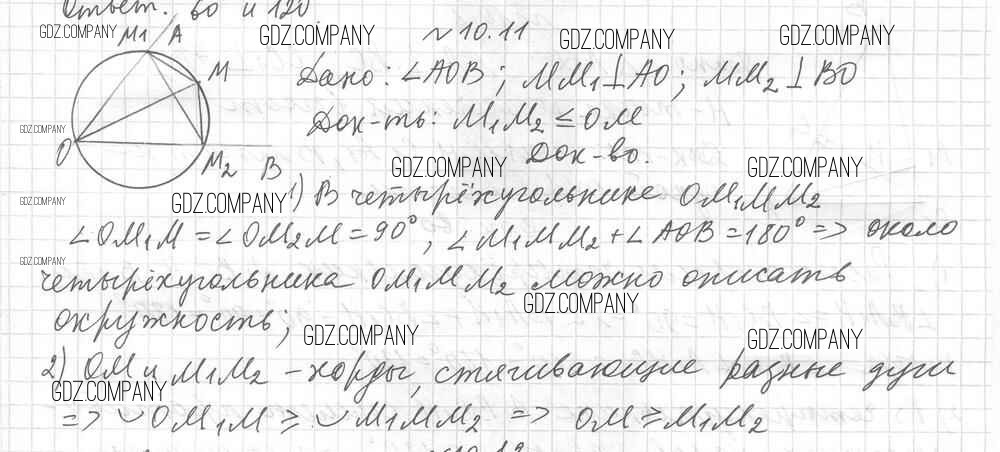 Ответ. 60 и 120
GDZ.COMPANY GDZ.COMPANY GDZ.COMPANY GDZ.COMPANY
M1 A
№10.11
Дано: ∠AOB; MM₁⊥AO; MM₂⊥BO
M
Док-ть: M₁M₂ ≤ OM
GDZ.COMPANY
O
M₂ B
Док-во.
GDZ.COMPANY GDZ.COMPANY
1) В четырёхугольнике OM₁MM₂
GDZ.COMPANY GDZ.COMPANY
∠OM₁M = ∠OM₂M = 90°, ∠M₁MM₂ + ∠AOB = 180° => около
GDZ.COMPANY
четырёхугольника OM₁MM₂ можно описать
GDZ.COMPANY
окружность;
GDZ.COMPANY GDZ.COMPANY
2) OM и M₁M₂ – хорды, стягивающие разные дуги
GDZ.COMPANY
=> ◡OM₁M ≥ ◡M₁MM₂ => OM ≥ M₁M₂